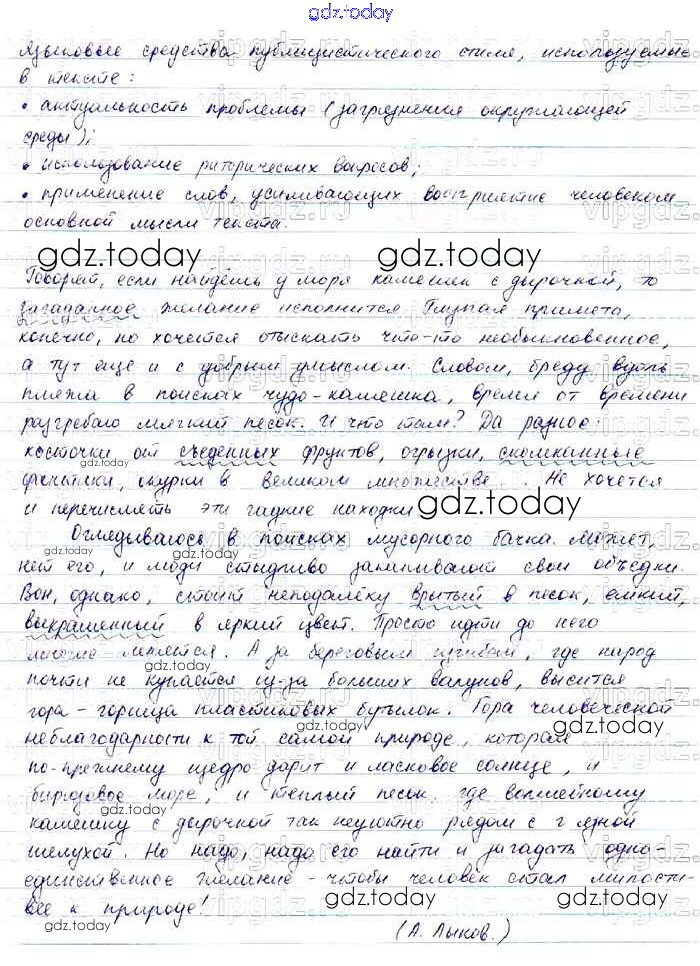 gdz.today
Языковые средства публицистического стиля, используемые
в тексте:
• актуальность проблемы (загрязнения окружающей
среды);
• использование риторических вопросов;
• применение слов, усиливающих восприятие человеком
основной мысли текста.
gdz.today gdz.today
Говорят, если найдёшь у моря камешек с дырочкой, то
загаданное желание исполнится. Глупая примета,
конечно, но хочется отыскать что-то необыкновенное,
а тут еще и с добрым умыслом. Словом, бреду вдоль
пляжа в поисках чудо-камешка, время от времени
разгребаю мягкий песок. И что там? Да разное:
косточки от съеденных фруктов, огрызки, скомканные
gdz.today
фантики, окурки в великом множестве... Не хочется
и перечислять эти гадкие находки
gdz.today
Оглядываюсь в поисках мусорного бачка. Может,
gdz.today
нет его, и люди стыдливо закапывают свои объедки.
Вон, однако, стоит неподалёку врытый в песок, ёмкий,
выкрашенный в яркий цвет. Просто идти до него
многие ленятся. А за береговым изгибом, где народ
gdz.today
почти не купается из-за больших валунов, высится
гора-горища пластиковых бутылок. Гора человеческой
gdz.today
неблагодарности к той самой природе, которая
по-прежнему щедро дарит и ласковое солнце, и
бирюзовое море, и тёплый песок, где волшебному
gdz.today
камешку с дырочкой так неуютно рядом с грязной
шелухой. Но надо, надо его найти и загадать одно-
единственное желание - чтобы человек стал милости-
gdz.today gdz.today
вее к природе!
(А. Лыков.)